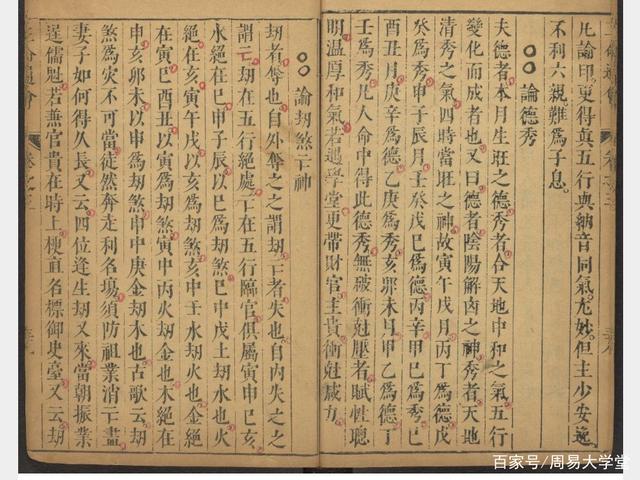 凡論印更得眞五行與納音同氣尤妙但主少安逸
不利六親難爲子息
論德秀
夫德者本月生旺之德秀者合天地中和之氣五行
變化而成者也又曰德者陰陽解凶之神秀者天地
清秀之氣四時當旺之神故寅午戌月丙丁爲德戊
癸爲秀申子辰月壬癸戊己爲德丙辛甲己爲秀巳
酉丑月庚辛爲德乙庚爲秀亥卯未月甲乙爲德丁
壬爲秀凡人命中得此德秀無破衝尅壓者賦性聰
明温厚和氣若遇學堂更帶財官主貴衝尅減力
論刼煞亡神
刼者奪也自外奪之之謂刼亡者失也自内失之之
謂亡刼在五行絶處亡在五行臨官俱屬寅申巳亥
水絶在巳申子辰以巳爲刼煞巳中戊土刼水也火
絶在亥寅午戌以亥爲刼煞亥中壬水刼火也金絶
在寅巳酉丑以寅爲刼煞寅中丙火刼金也木絶在
申亥卯未以申爲刼煞申中庚金刼木也古歌云刼
煞爲灾不可當徒然奔走利名塲須防祖業消亡盡
妻子如何得久長又云四位逢生刼又來當朝振業
逞儒魁若兼官貴在時上梗直名標御史臺又云刼
百家号/周易大学堂